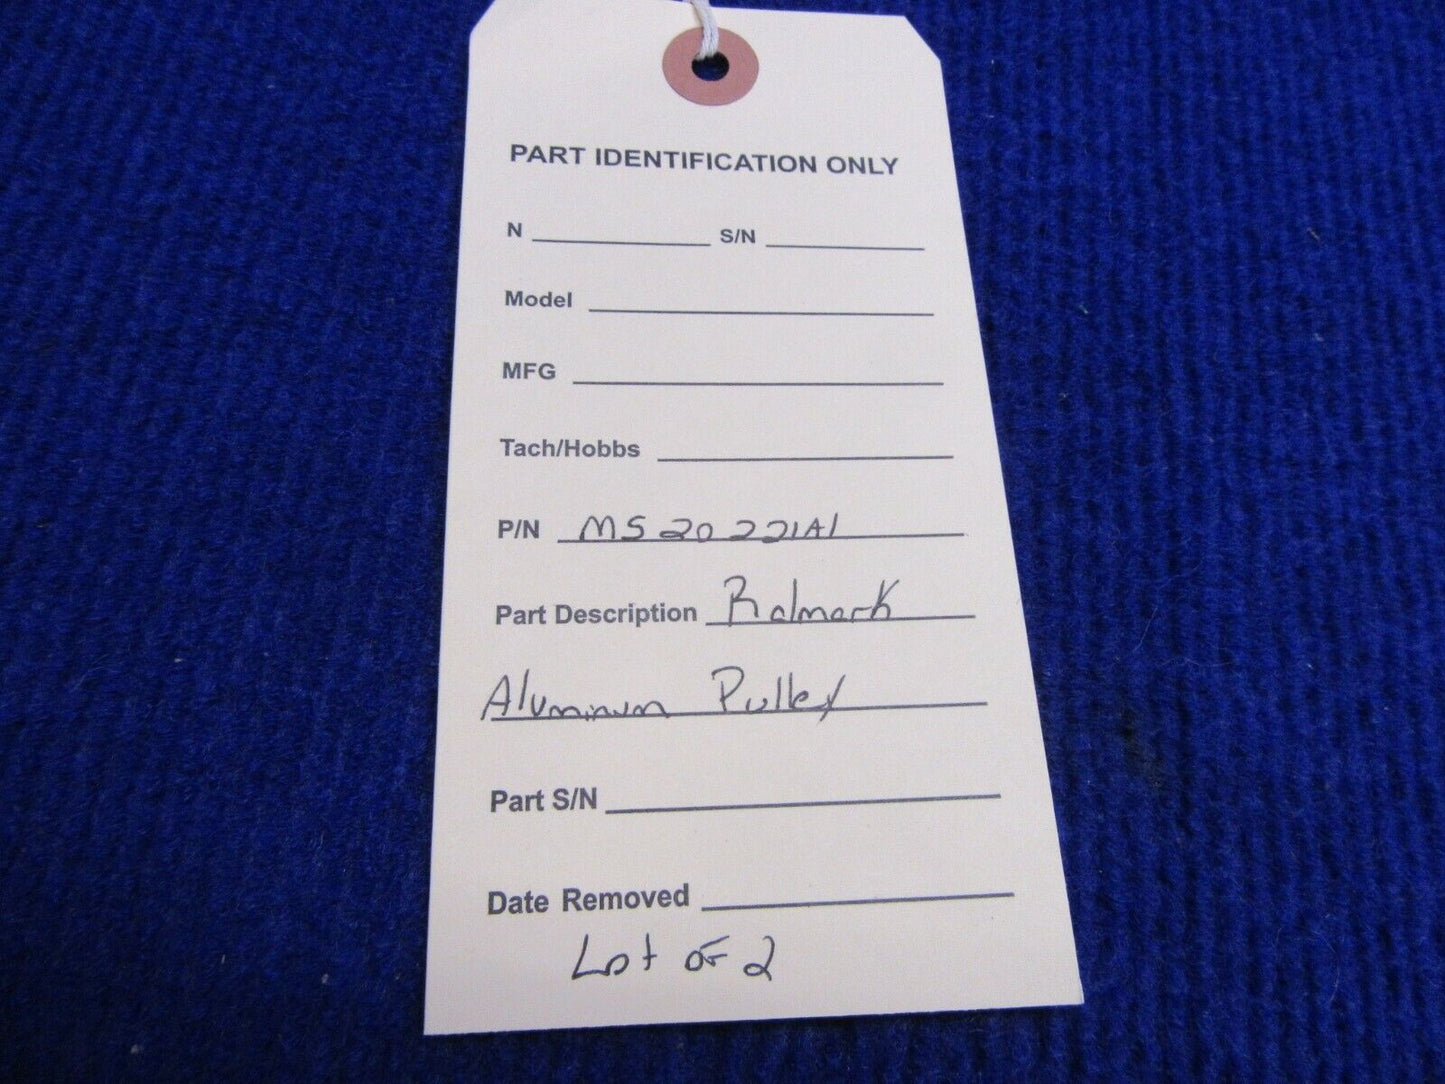 PART IDENTIFICATION ONLY
N S/N
Model
MFG
Tach/Hobbs
P/N MS20221A1
Part Description Ralmark
Aluminum Pulley
Part S/N
Date Removed
Lot of 2